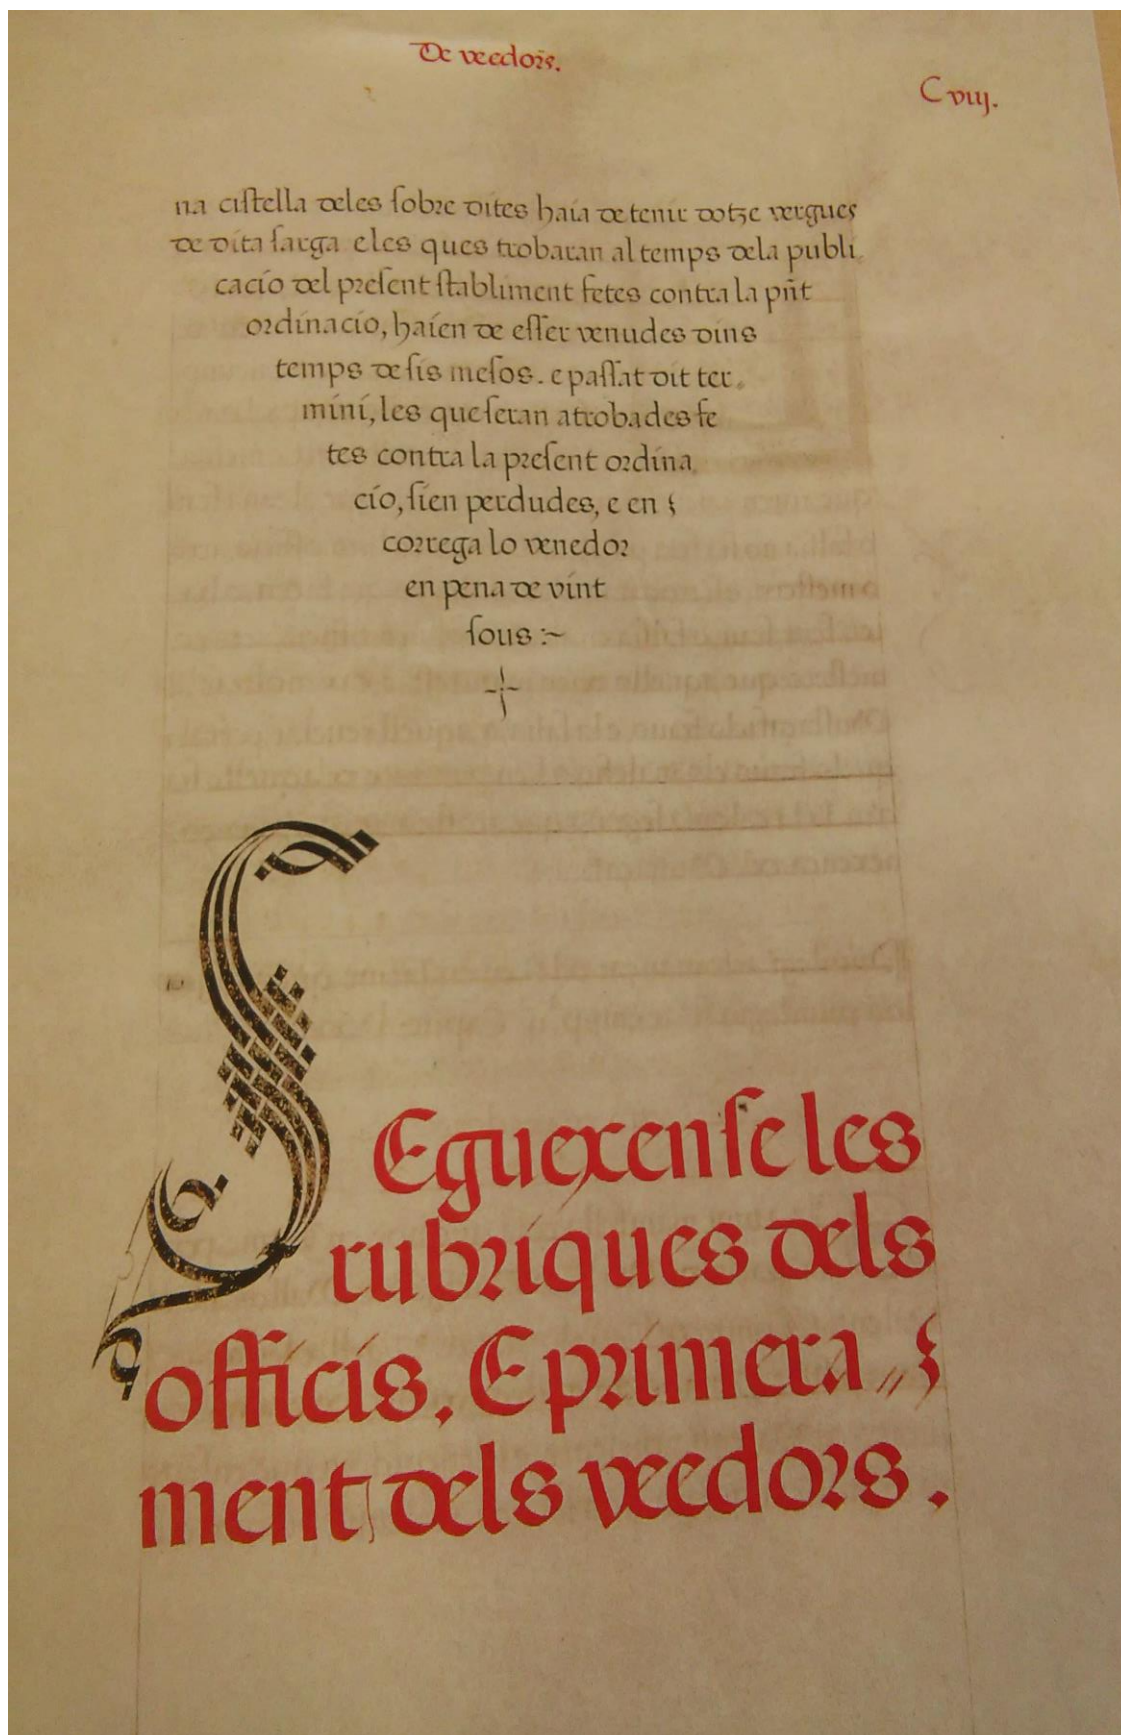 De veedor̃s.
C viij.
na cistella deles sobre dites haia de tenir dotze vergues
de dita sarga eles ques trobaran al temps dela publi
cacio del present stabliment fetes contra la pñt
ordinacio, haien de esser venudes dins
temps de sis mesos. e passat dit ter
mini, les que seran atrobades fe
tes contra la present ordina
cio, sien perdudes, e en
correga lo venedor
en pena de vint
sous :~
Seguexense les
rubriques dels
officis. E primera
ment dels veedors.